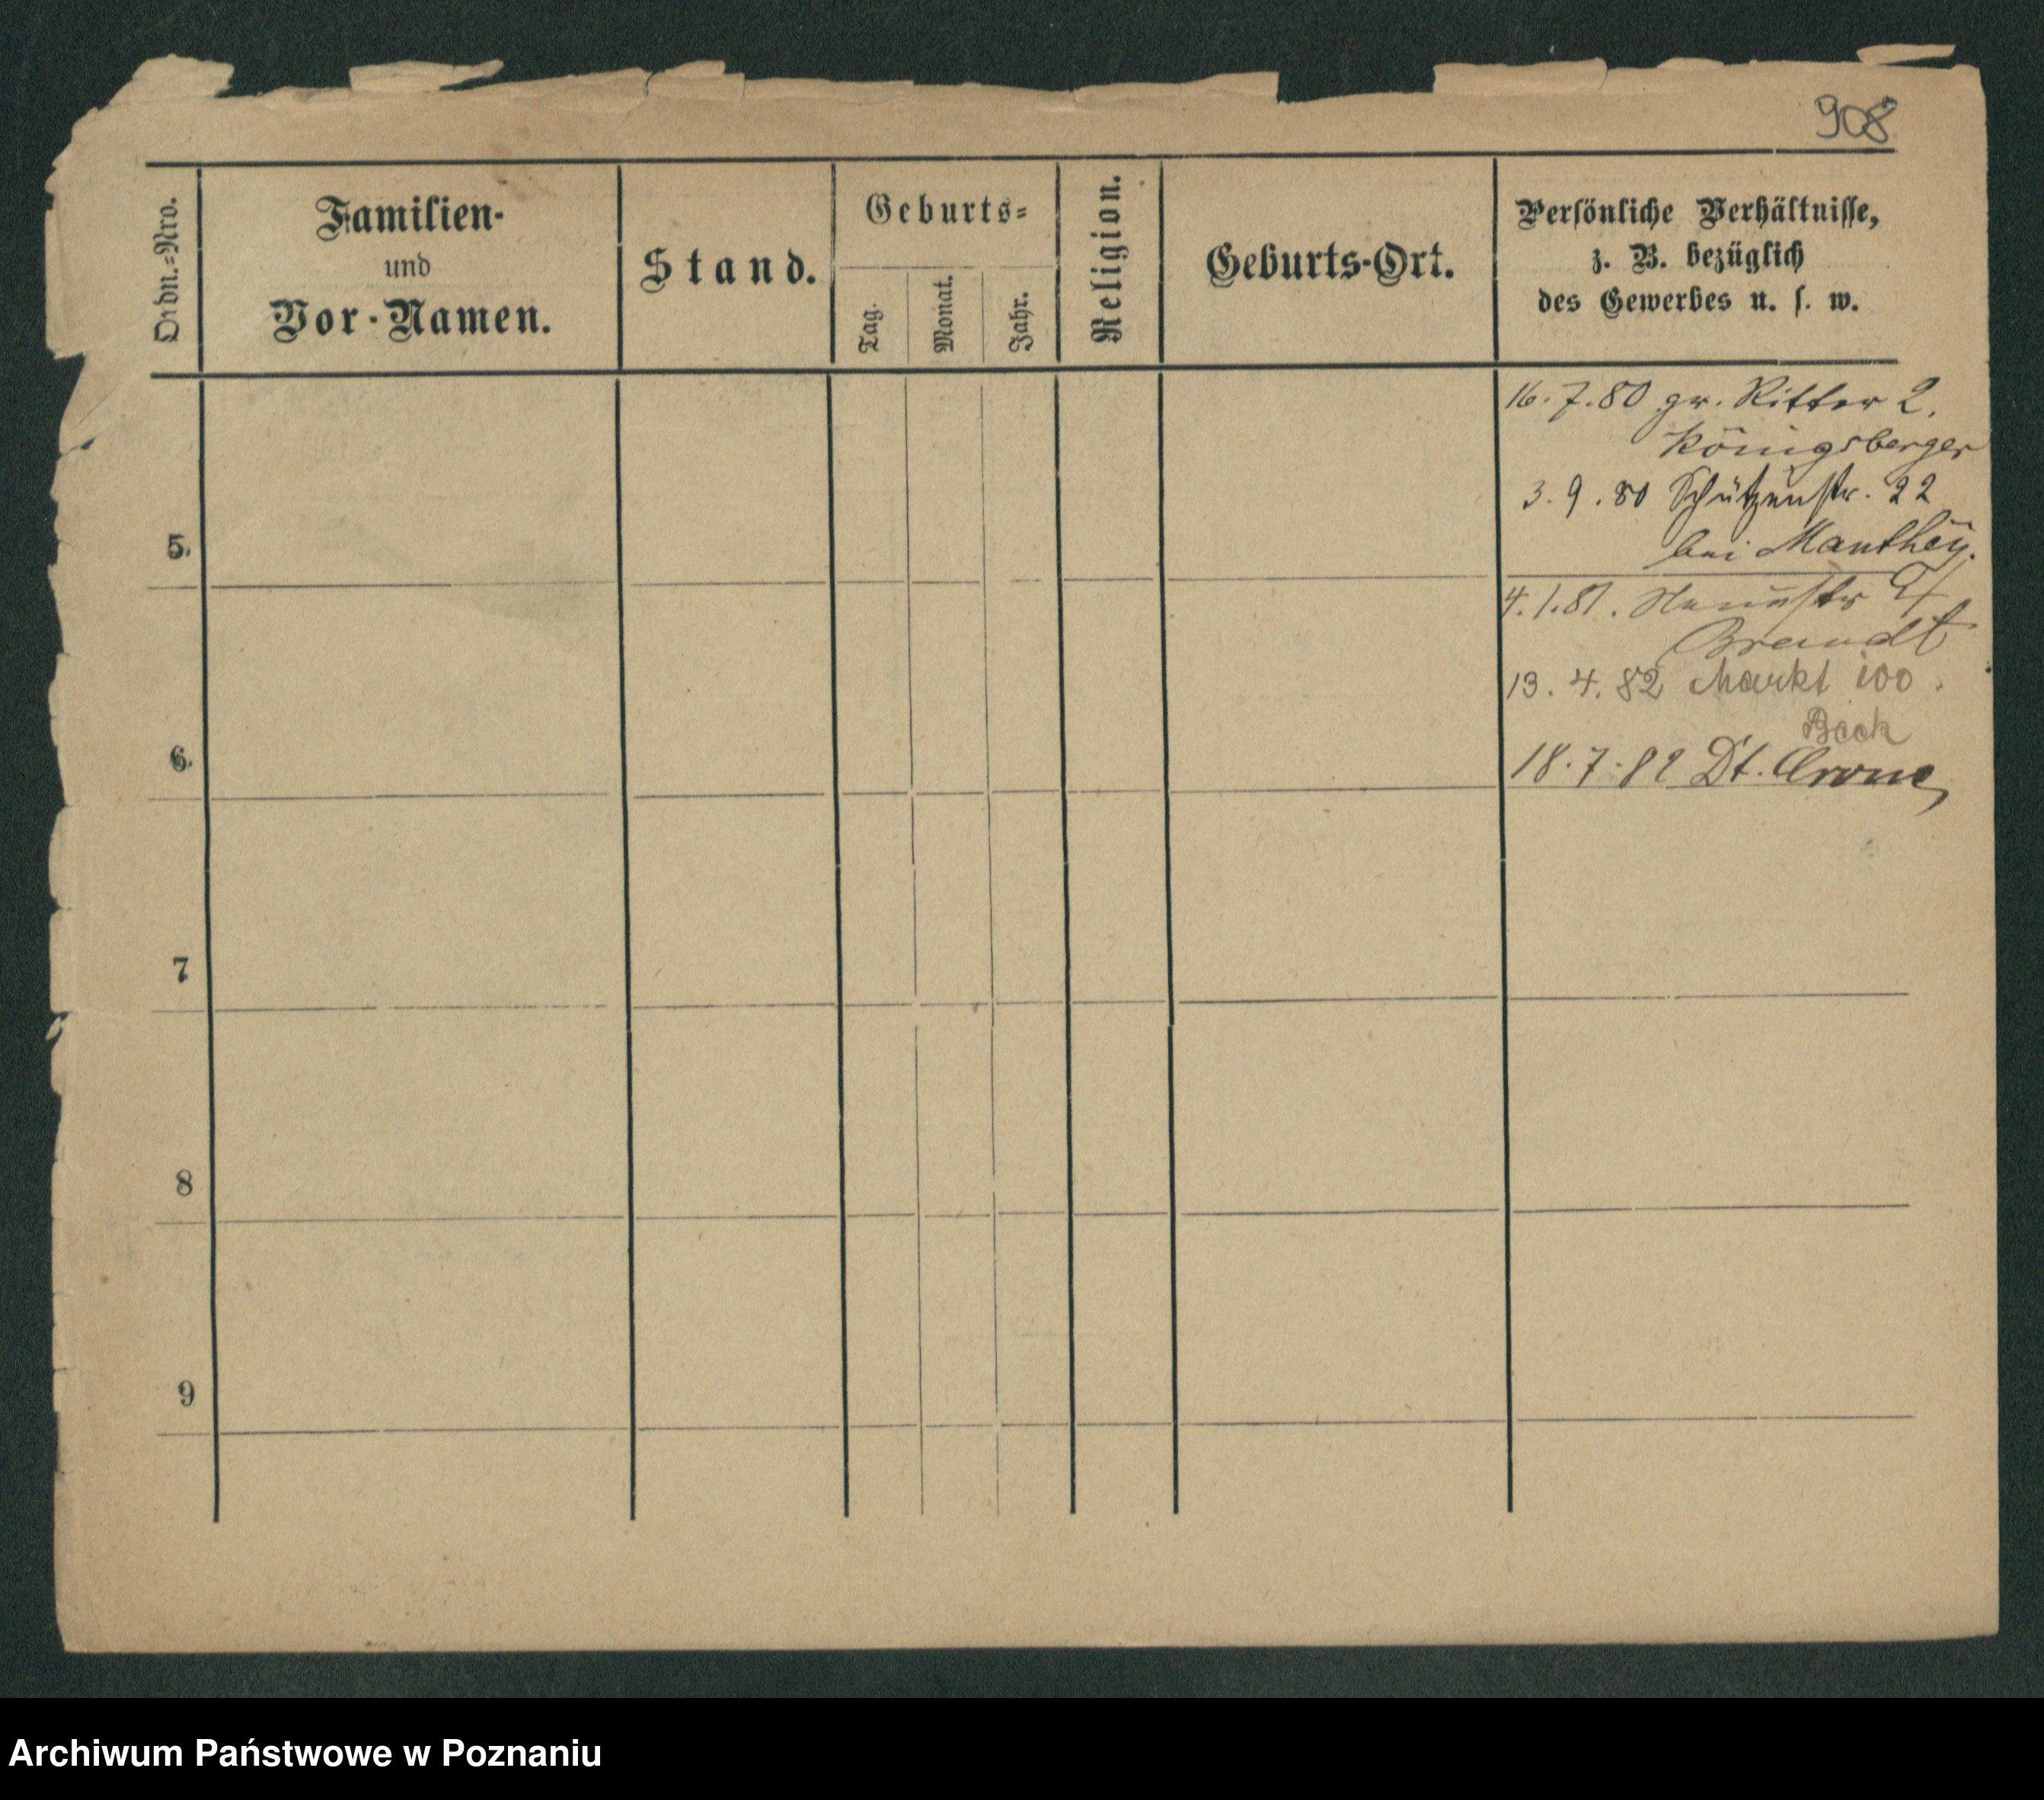 908
Ordn.=Nro.
Familien-
und
Vor-Namen.
Stand.
Geburts=
Tag.
Monat.
Jahr.
Religion.
Geburts-Ort.
Persönliche Verhältnisse,
z. B. bezüglich
des Gewerbes u. s. w.
16.7.80 gr. Ritter 2.
Königsberger
3.9.80 Schützenstr. 22
bei Manthey.
5.
4.1.81.
Brandt
13.4.82 Markt 100.
6.
18.7.82 Dt. Crone
7
8
9
Archiwum Państwowe w Poznaniu